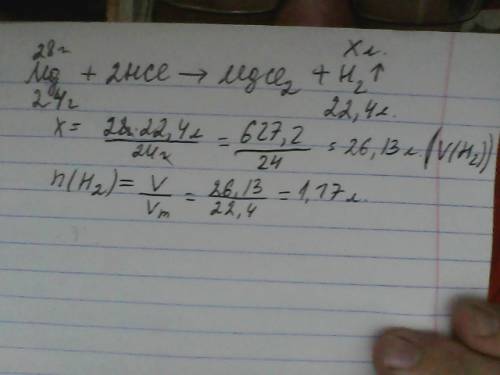 28г x л.
Mg + 2HCl → MgCl₂ + H₂↑
24г 22,4л.
x = 28г·22,4л / 24г = 627,2 / 24 = 26,13 л. (V(H₂))
n(H₂) = V / Vm = 26,13 / 22,4 = 1,17 л.